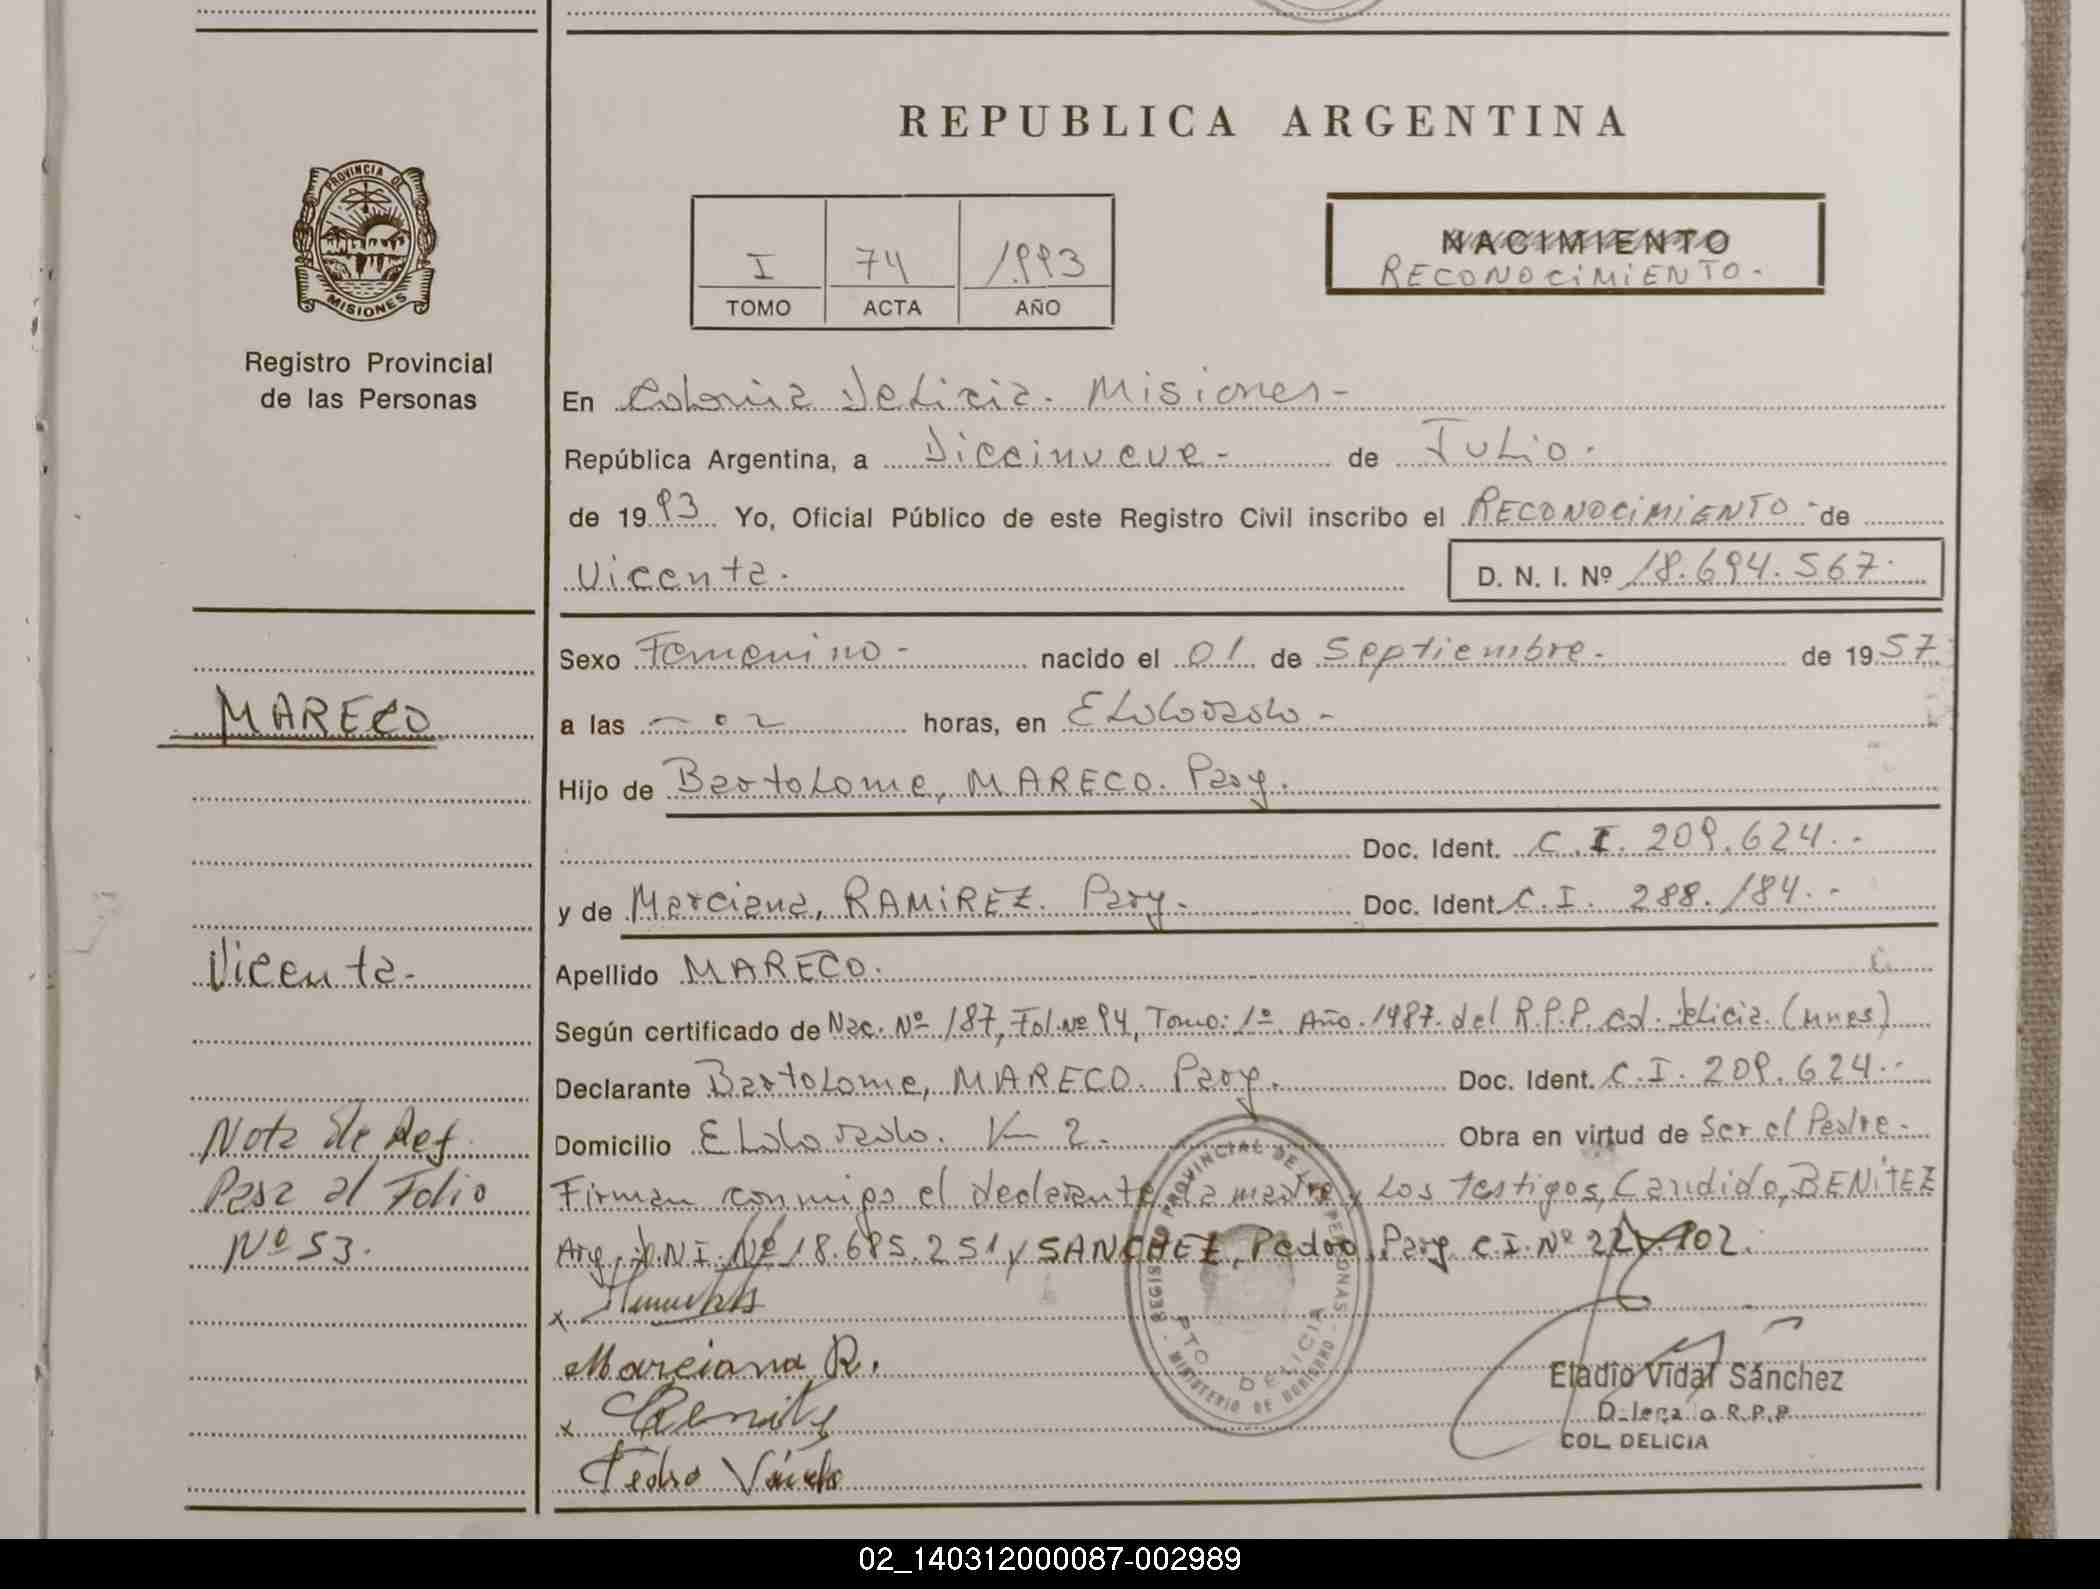 REPUBLICA ARGENTINA
PROVINCIA DE
MISIONES
Registro Provincial
de las Personas
I 74 1993
TOMO ACTA AÑO
NACIMIENTO
RECONOCIMIENTO.
En Colonia Delicia. Misiones-
República Argentina, a Diecinueve- de Julio.
de 1993 Yo, Oficial Público de este Registro Civil inscribo el RECONOCIMIENTO de
Vicenta. D. N. I. Nº 18.694.567.
Sexo Femenino- nacido el 01 de Septiembre. de 1957
a las horas, en Eldorado-
MARECO
Hijo de Bartolome, MARECO. Pary.
Doc. Ident. C.I. 209.624.-
y de Marciana, RAMIREZ. Pary. Doc. Ident. C.I. 288.184.-
Vicenta-
Apellido MARECO.
Según certificado de Nac. Nº 187, Fol. Nº 94, Tomo: 1º Año. 1987. del R.P.P. Col. Delicia. (Mnes)
Declarante Bartolome, MARECO. Pary. Doc. Ident. C.I. 209.624.-
Domicilio Eldorado. K 2. Obra en virtud de Ser el Padre-
Nota de Ref.
Pasa al Folio
Nº 53.
Firman conmigo el declarante, la madre y Los testigos, Candido, BENITEZ
Arg. D.N.I. Nº 18.685.251 y SANCHEZ, Pedro, Pary C.I. Nº 102.
x
Marciana R.
x Benitz
Pedro
REGISTRO PROVINCIAL DE LAS PERSONAS
PTO DELICIA
MINISTERIO DE GOBIERNO
Eladio Vidal Sánchez
Delegado R.P.P.
COL. DELICIA
02_140312000087-002989